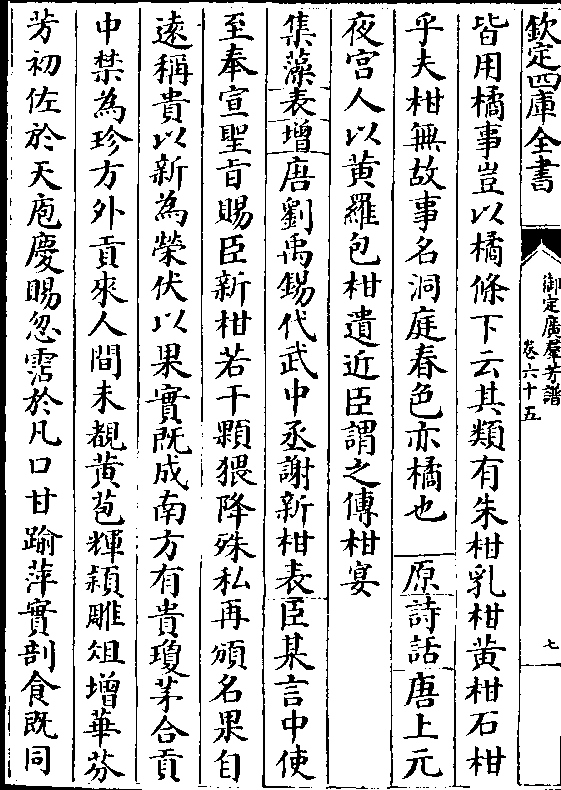 欽定四庫全書
御定廣羣芳譜
卷六十五
七
皆用橘事豈以橘條下云其類有朱柑乳柑黃柑石柑
乎夫柑無故事名洞庭春色亦橘也　原詩話唐上元
夜宮人以黃羅包柑遺近臣謂之傳柑宴
集藻表增唐劉禹錫代武中丞謝新柑表臣某言中使
至奉宣聖旨賜臣新柑若干顆猥降殊私再頒名果自
遠稱貴以新為榮伏以果實既成南方有貴瓊茅合貢
中禁為珍方外貢來人間未覩黃苞輝穎雕俎增華芬
芳初佐於天庖慶賜忽霑於凡口甘踰萍實剖食既同